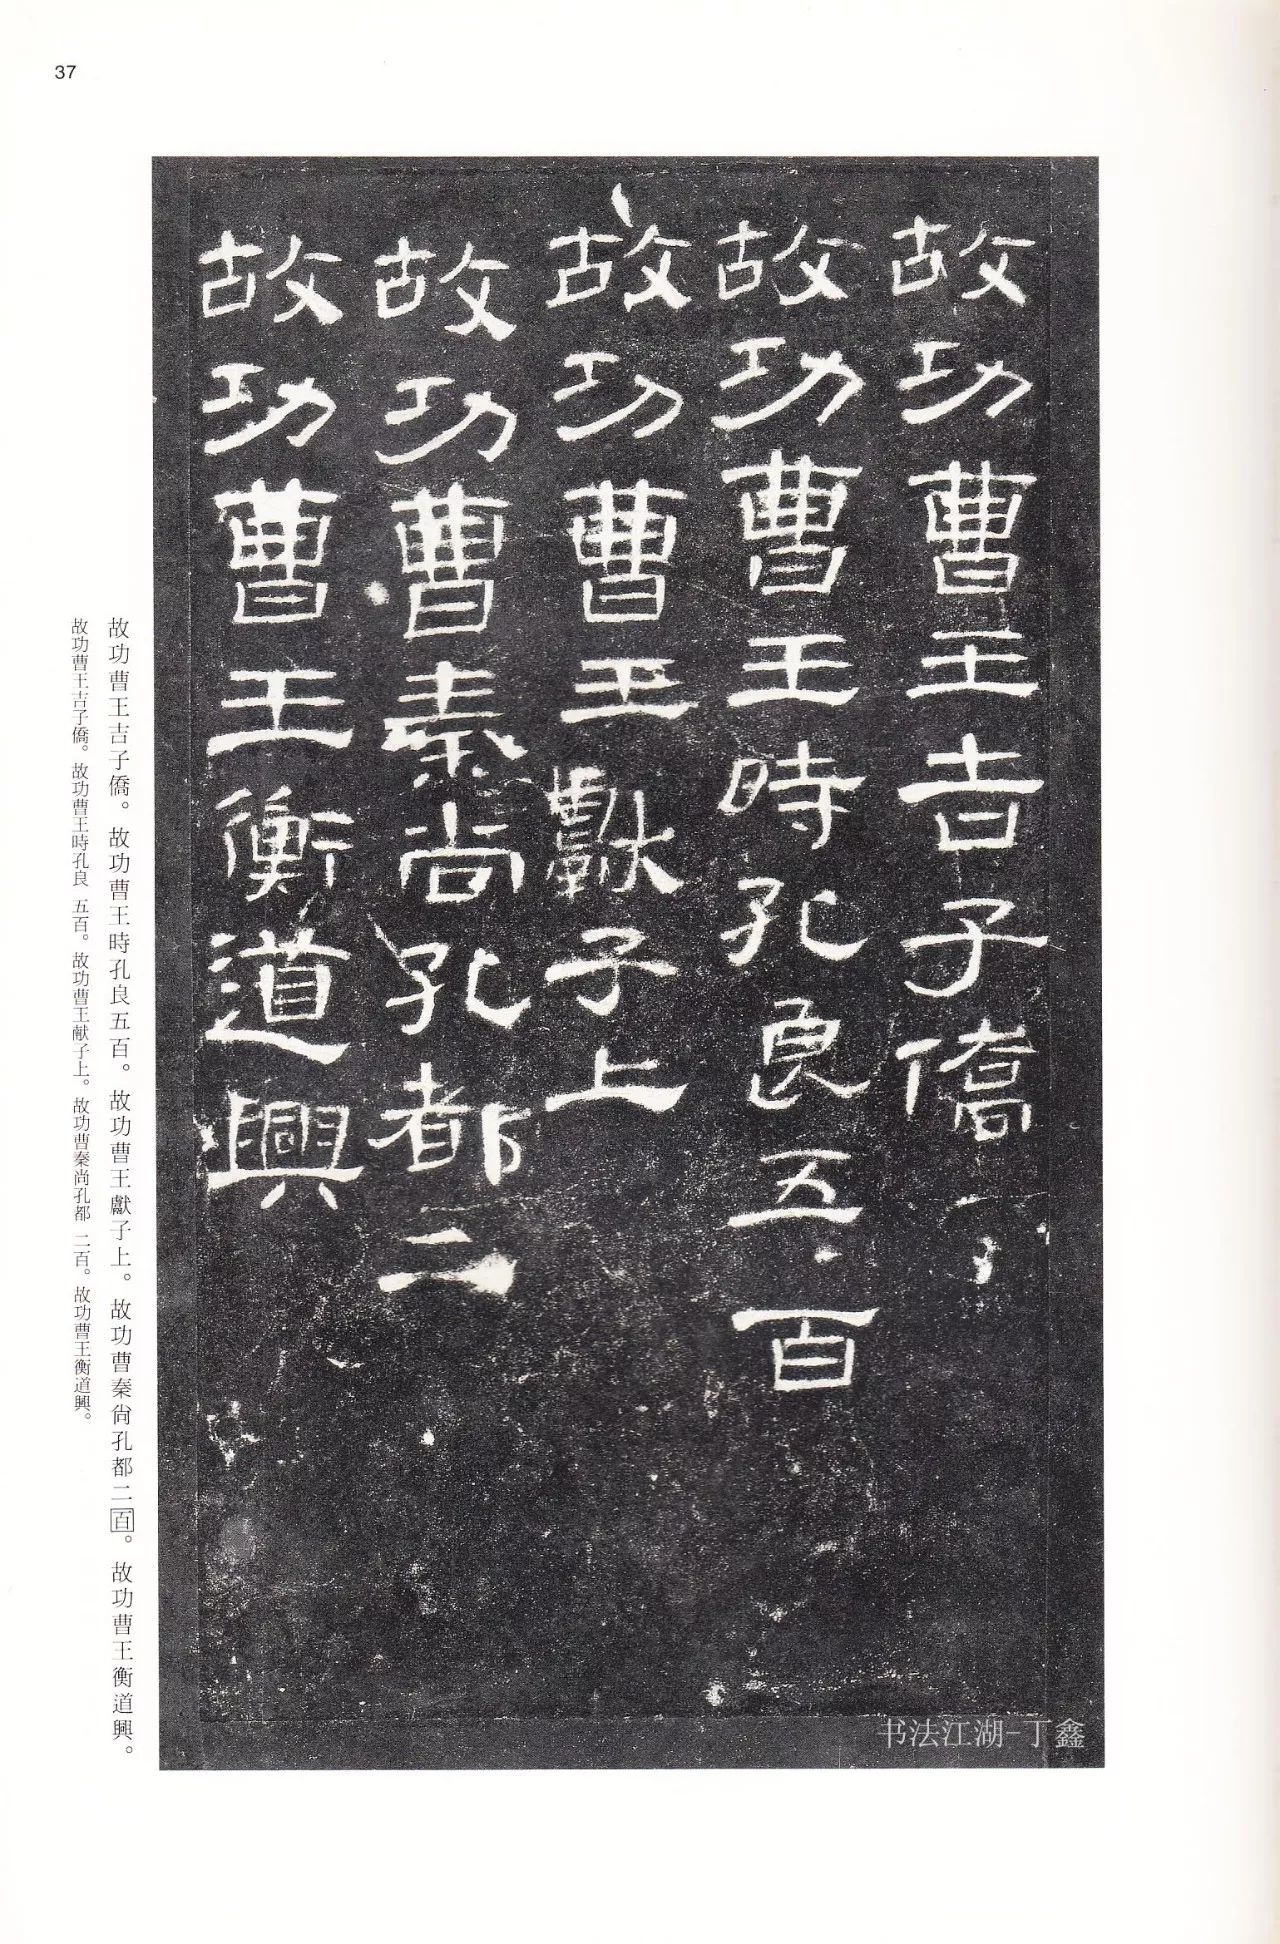 37
故功曹王吉子僑
故功曹王時孔良五百
故功曹王獻子上
故功曹秦尚孔都二
故功曹王衡道興
故功曹王吉子僑。故功曹王時孔良五百。故功曹王獻子上。故功曹秦尚孔都二百。故功曹王衡道興。
故功曹王吉子僑。故功曹王時孔良 五百。故功曹王献子上。故功曹秦尚孔都 二百。故功曹王衡道興。
书法江湖-丁鑫